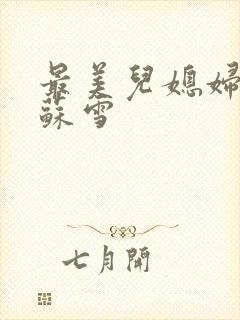 最美兒媳婦
蘇雪
七月開